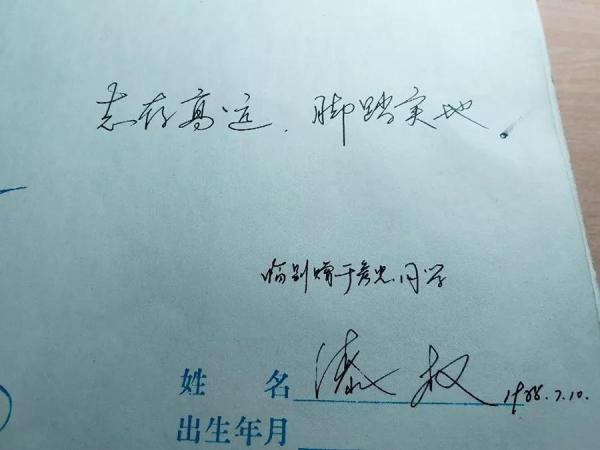 志存高远，脚踏实地。
临别赠于彦忠同学
姓名 权 1988.7.10.
出生年月